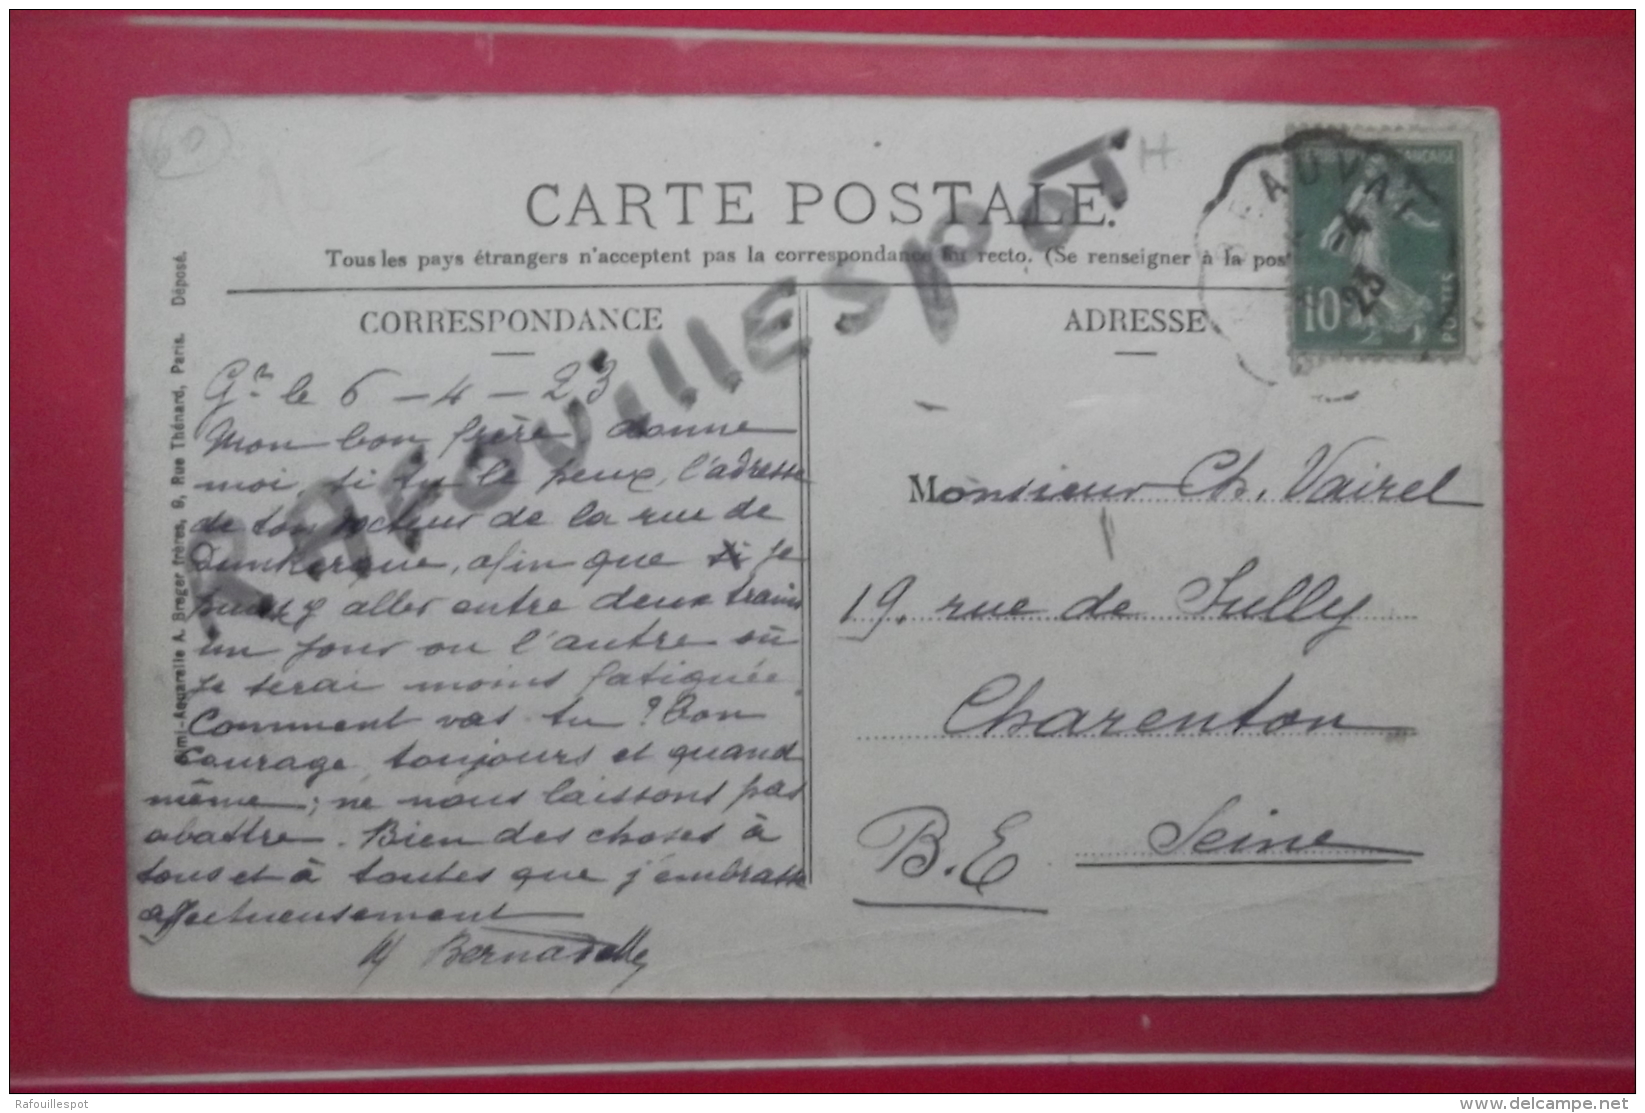 60
H
CARTE POSTALE.
Tous les pays étrangers n'acceptent pas la correspondance au recto. (Se renseigner à la pos
CORRESPONDANCE
Gr. le 6 - 4 - 23
Mon bon frère, donne
moi, si tu le peux, l'adresse
de ton docteur de la rue de
Dunkerque, afin que je
puisse y aller entre deux trains
un jour ou l'autre où
je serai moins fatiguée.
Comment vas-tu ? Bon
courage, toujours et quand
même ; ne nous laissons pas
abattre. Bien des choses à
tous et à toutes que j'embrasse
affectueusement
Bernadette
ADRESSE
Monsieur Ch. Vairel
19. rue de Sully
Charenton
Seine
B.E
AUVAI
-4
23
FRANÇAISE
10
POSTES
Simi-Aquarelle A. Breger frères, 9, Rue Thénard, Paris. Déposé.
RAFOUILLESPOT
Rafouillespot
delcampe.net